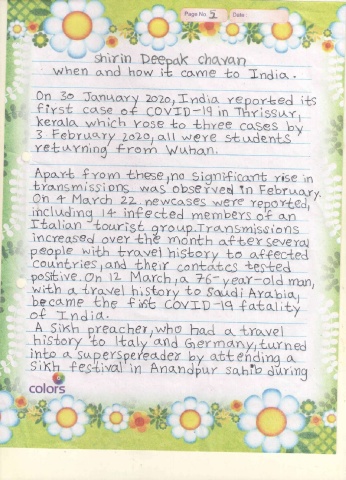 Page No. 5 Date:
Shirin Deepak chavan
when and how it came to India.
On 30 January 2020, India reported its
first case of COVID-19 in Thrissur,
kerala which rose to three cases by
3 February 2020, all were students
returning from Wuhan.
Apart from these, no significant rise in
transmissions was observed in February.
On 4 March 22 newcases were reported,
including 14 infected members of an
Italian tourist group. Transmissions
increased over the month after several
people with travel history to affected
countries, and their contatcs tested
positive. On 12 March, a 76-year-old man,
with a travel history to Saudi Arabia,
became the first COVID-19 fatality
of India.
A Sikh preacher, who had a travel
history to Italy and Germany, turned
into a superspereader by attending a
Sikh festival in Anandpur sahib during
colors